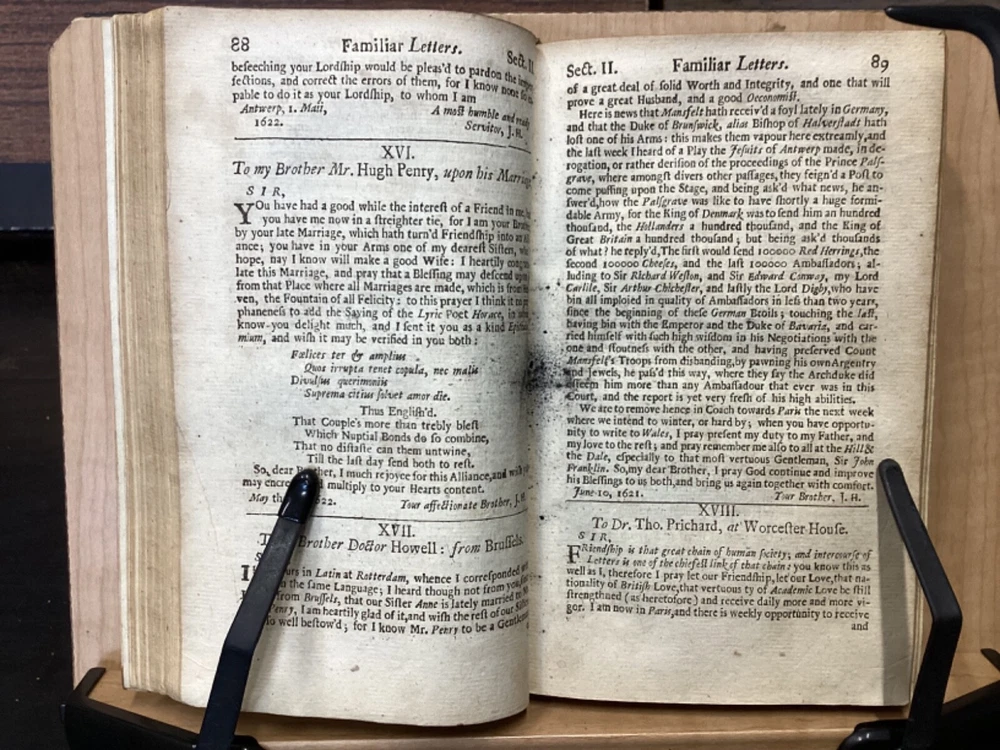 88 Familiar Letters. Sect. II
beseeching your Lordship would be pleas'd to pardon the
fections, and correct the errors of them, for I know none
pable to do it as your Lordship, to whom I am
Antwerp, 1. Maii, A most humble and ready
1622. Servitor, J.H.
XVI.
To my Brother Mr. Hugh Penry, upon his Marriage
SIR,
YOu have had a good while the interest of a Friend in me,
you have me now in a streighter tie, for I am your Brother
by your late Marriage, which hath turn'd Friendship into an
ance; you have in your Arms one of my dearest Sisters, who
hope, nay I know will make a good Wife: I heartily
late this Marriage, and pray that a Blessing may descend upon
from that Place where all Marriages are made, which is from
ven, the Fountain of all Felicity: to this prayer I think it no
phaneness to add the Saying of the Lyric Poet Horace, in
know you delight much, and I sent it you as a kind
mium, and wish it may be verified in you both:
Fœlices ter & amplius
Quos irrupta tenet copula, nec malis
Divulsus querimoniis
Suprema citius solvet amor die.
Thus English'd.
That Couple's more than trebly blest
Which Nuptial Bonds do so combine,
That no distaste can them untwine,
Till the last day send both to rest.
So, dear Brother, I much rejoyce for this Alliance, and wish
may encrease multiply to your Hearts content.
May th 22. Your affectionate Brother, J.H.
XVII.
Brother Doctor Howell: from Brussels.
urs in Latin at Rotterdam, whence I corresponded
the same Language; I heard though not from you,
from Brussels, that our Sister Anne is lately married to
Penry, I am heartily glad of it, and wish the rest of our Sisters
so well bestow'd; for I know Mr. Penry to be a Gentleman
Sect. II. Familiar Letters. 89
of a great deal of solid Worth and Integrity, and one that will
prove a great Husband, and a good Oeconomist.
Here is news that Mansfelt hath receiv'd a foyl lately in Germany,
and that the Duke of Brunswick, alias Bishop of Halverstadt hath
lost one of his Arms: this makes them vapour here extreamly, and
the last week I heard of a Play the Jesuits of Antwerp made, in de-
rogation, or rather derision of the proceedings of the Prince Pals-
grave, where amongst divers other passages, they feign'd a Post to
come puffing upon the Stage, and being ask'd what news, he an-
swer'd, how the Palsgrave was like to have shortly a huge formi-
dable Army, for the King of Denmark was to send him an hundred
thousand, the Hollanders a hundred thousand, and the King of
Great Britain a hundred thousand; but being ask'd thousands
of what? he reply'd, The first would send 100000 Red Herrings, the
second 100000 Cheeses, and the last 100000 Ambassadors; al-
luding to Sir Richard Weston, and Sir Edward Conway, my Lord
Carlile, Sir Arthur Chichester, and lastly the Lord Digby, who have
bin all imploied in quality of Ambassadors in less than two years,
since the beginning of these German Broils; touching the last,
having bin with the Emperor and the Duke of Bavaria, and car-
ried himself with such high wisdom in his Negotiations with the
one and stoutness with the other, and having preserved Count
Mansfelt's Troops from disbanding, by pawning his own Argentry
and Jewels, he pass'd this way, where they say the Archduke did
esteem him more than any Ambassadour that ever was in this
Court, and the report is yet very fresh of his high abilities.
We are to remove hence in Coach towards Paris the next week
where we intend to winter, or hard by; when you have opportu-
nity to write to Wales, I pray present my duty to my Father, and
my love to the rest; and pray remember me also to all at the Hill &
the Dale, especially to that most vertuous Gentleman, Sir John
Franklin. So, my dear Brother, I pray God continue and improve
his Blessings to us both, and bring us again together with comfort.
June 10, 1621. Your Brother, J.H.
XVIII.
To Dr. Tho. Prichard, at Worcester-House.
SIR,
FRiendship is that great chain of human society, and intercourse of
Letters is one of the chiefest links of that chain: you know this as
well as I, therefore I pray let our Friendship, let our Love, that na-
tionality of British Love, that vertuous ty of Academic Love be still
strengthned (as heretofore) and receive daily more and more vi-
gor. I am now in Paris, and there is weekly opportunity to receive
and